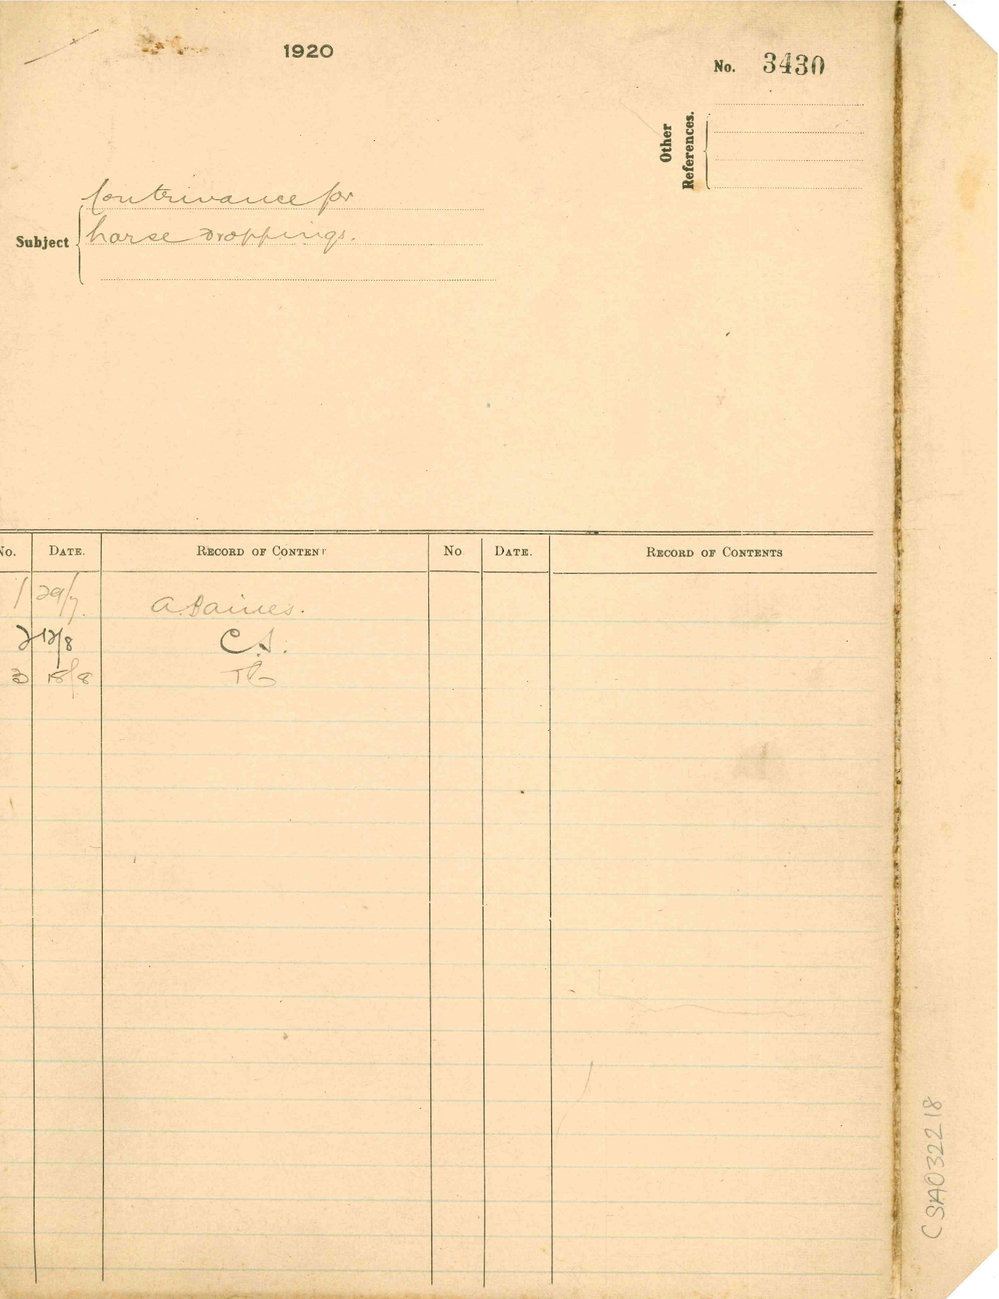 1920
No. 3430
Other
References.
Contrivance for
Subject horse droppings.
No. DATE. RECORD OF CONTENT No DATE. RECORD OF CONTENTS
1 29/7. A. Baines.
2 12/8 C.S.
3 18/8
CSA032218